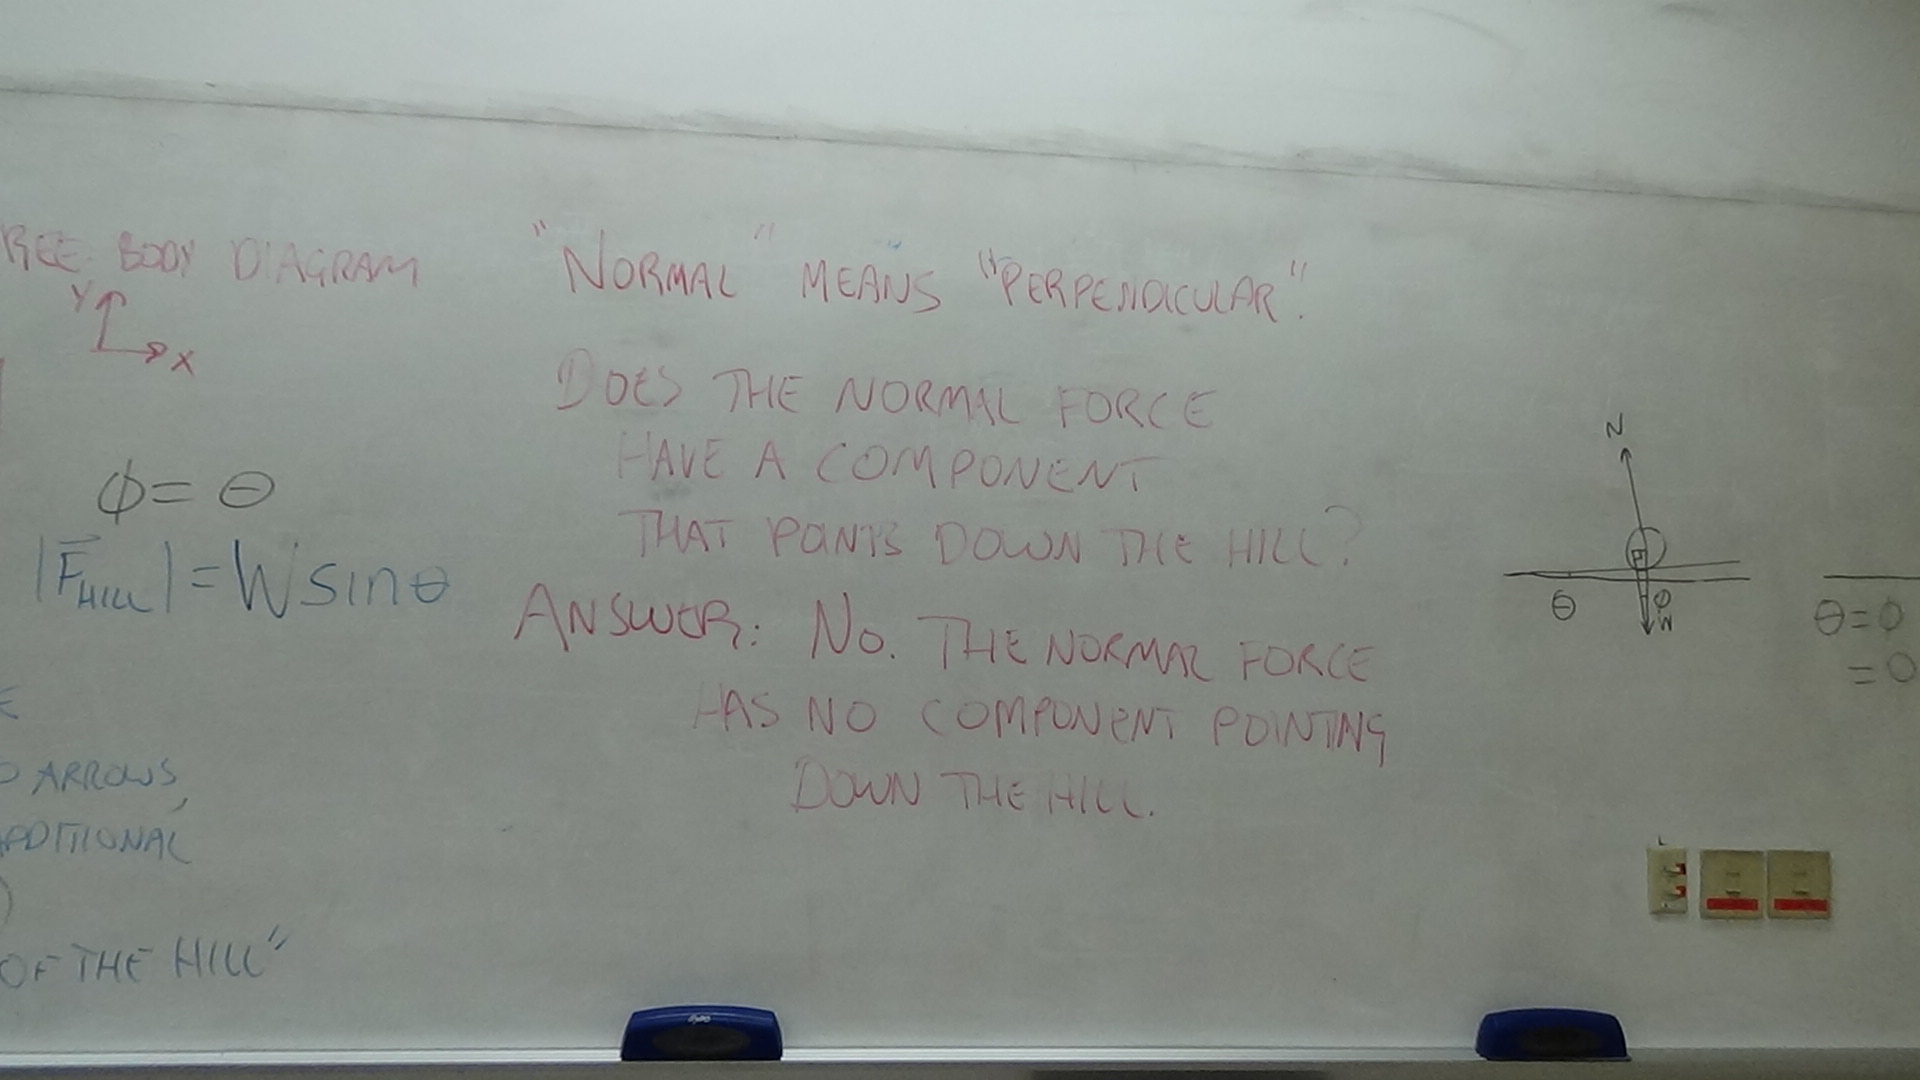 REE BODY DIAGRAM
Y
X
ϕ = θ
|F⃗HILL| = W sin θ
ARROWS,
ADDITIONAL
OF THE HILL"
"NORMAL" MEANS "PERPENDICULAR".
DOES THE NORMAL FORCE
HAVE A COMPONENT
THAT POINTS DOWN THE HILL?
ANSWER: NO. THE NORMAL FORCE
HAS NO COMPONENT POINTING
DOWN THE HILL.
N
θ
ϕ
W
θ = 0
= 0